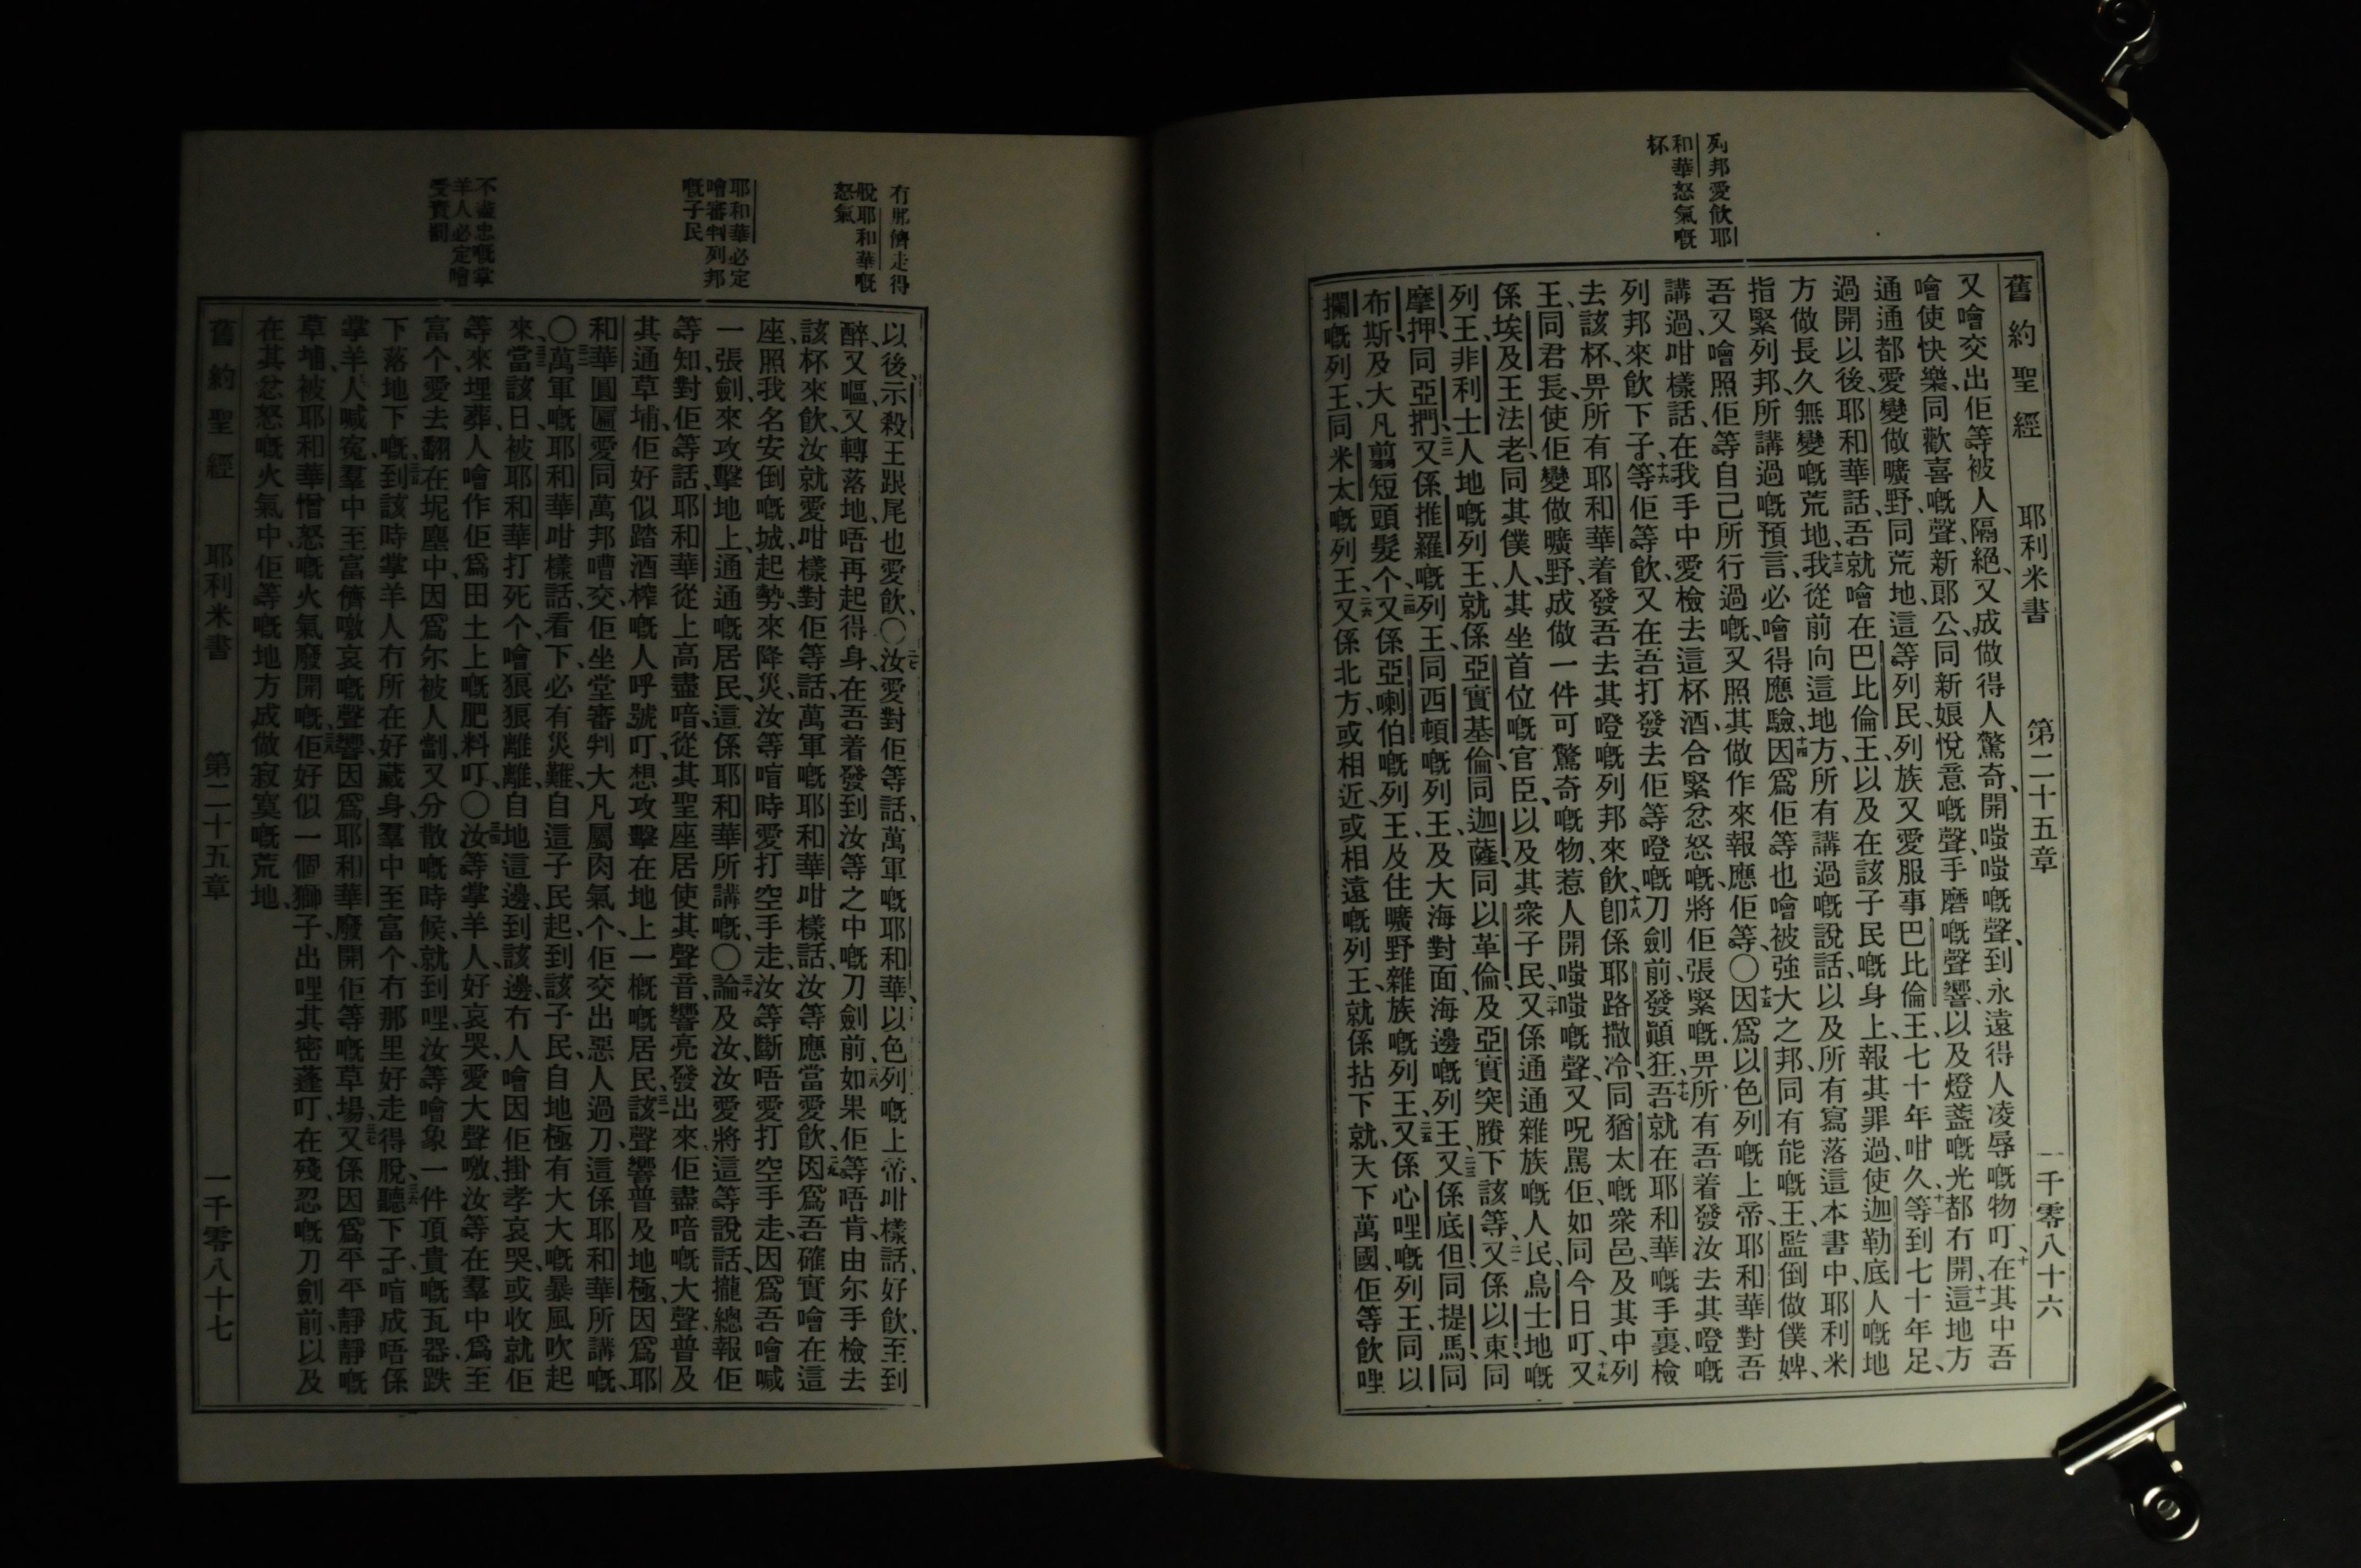 列邦愛飲耶
和華怒氣嘅
杯
舊約聖經 耶利米書 第二十五章 一千零八十六
又噲交出佢等被人隔絕、又成做得人驚奇、開嗤嗤嘅聲、到永遠得人凌辱嘅物叮、十在其中吾
噲使快樂、同歡喜嘅聲、新郎公、同新娘悅意嘅聲、手磨嘅聲響、以及燈盞嘅光都冇開、十一這地方
通通都愛變做曠野、同荒地、這等列民、列族又愛服事巴比倫王、七十年咁久、十二等到七十年足、
過開以後、耶和華話、吾就噲在巴比倫王、以及在該子民嘅身上、報其罪過、使迦勒底人嘅地
方做長久無變嘅荒地、十三我從前向這地方、所有講過嘅說話、以及所有寫落這本書中、耶利米
指緊列邦、所講過嘅預言、必噲得應驗、十四因爲佢等也噲被強大之邦、同有能嘅王、監倒做僕婢、
吾又噲照佢等自己所行過嘅、又照其做作來報應佢等、〇十五因爲以色列嘅上帝、耶和華對吾
講過、咁樣話、在我手中愛檢去這杯酒、合緊忿怒嘅、將佢張緊嘅、畀所有吾着發汝去其嘅
列邦來飲下子、十六等佢等飲、又在吾打發去佢等嘅刀劍前、發顚狂、十七吾就在耶和華嘅手裏、檢
去該杯、畀所有耶和華着發吾去其嘅列邦來飲、十八卽係耶路撒冷、同猶太嘅衆邑、及其中列
王、同君長、使佢變做曠野、成做一件可驚奇嘅物、惹人開嗤嗤嘅聲、又呪罵佢、如同今日叮、十九又
係埃及王法老、同其僕人、其坐首位嘅官臣、以及其衆子民、二十又係通通雜族嘅人民、烏士地嘅
列王、非利士人地嘅列王、就係亞實基倫、同迦薩、同以革倫、及亞實突賸下該等、二一又係以東、同
摩押、同亞捫、二二又係推羅嘅列王、同西頓嘅列王、及大海對面海邊嘅列王、二三又係底但、同提馬、同
布斯、及大凡剪短頭髮个、二四又係亞喇伯嘅列王、及住曠野雜族嘅列王、二五又係心哩嘅列王、同以
攔嘅列王、同米太嘅列王、二六又係北方、或相近、或相遠嘅列王、就係拈下就、天下萬國、佢等飲哩
冇那儕走得
脫耶和華嘅
怒氣
耶和華必定
噲審判列邦
嘅子民
不盡忠嘅掌
羊人必定噲
受責罰
以後、示殺王跟尾也愛飲、〇二七汝愛對佢等話、萬軍嘅耶和華、以色列嘅上帝、咁樣話、好飲、至到
醉、又嘔、又轉落地、唔再起得身、在吾着發到汝等之中嘅刀劍前、二八如果佢等唔肯、由尔手檢去
該杯來飲、汝就愛咁樣對佢等話、萬軍嘅耶和華、咁樣話、汝等應當愛飲、二九因爲吾確實噲在這
座、照我名安倒嘅城、起勢來降災、汝等喧時愛打空手走、汝等斷唔愛打空手走、因爲吾噲喊
一張劍、來攻擊地上、通通嘅居民、這係耶和華所講嘅、〇三十論及汝、汝愛將這等說話、攏總報佢
等知、對佢等話、耶和華從上高盡喑、從其聖座居使其聲音響亮發出來、佢盡喑嘅大聲、普及
其通草埔、佢好似踏酒榨嘅人呼號叮、想攻擊在地上一概嘅居民、三一該聲響普及地極、因爲耶
和華圓匾愛同萬邦嘈交、佢坐堂審判大凡屬肉氣个、佢交出惡人過刀、這係耶和華所講嘅、
〇三二萬軍嘅耶和華咁樣話、看下、必有災難、自這子民起、到該子民、自地極有大大嘅暴風吹起
來、三三當該日、被耶和華打死个、噲狠狠離離、自地這邊、到該邊、冇人噲因佢掛孝哀哭、或收就佢
等、來埋葬、人噲作佢爲田土上嘅肥料叮、〇三四汝等掌羊人、好哀哭、愛大聲噭、汝等在羣中爲至
富个、愛去翻在坭塵中、因爲尔被人劏、又分散嘅時候、就到哩、汝等噲象一件頂貴嘅瓦器、跌
下落地下嘅、三五到該時掌羊人冇所在好藏身、羣中至富个、冇那里好走得脫、三六聽下子、喧成唔係
掌羊人喊寃、羣中至富儕噭哀嘅聲響、因爲耶和華廢開佢等嘅草場、三七又係因爲平平靜靜嘅
草埔、被耶和華憎怒嘅火氣廢開嘅、三八佢好似一個獅子、出哩其密蓬叮、在殘忍嘅刀劍前、以及
在其忿怒嘅火氣中、佢等嘅地方、成做寂寞嘅荒地、
舊約聖經 耶利米書 第二十五章 一千零八十七